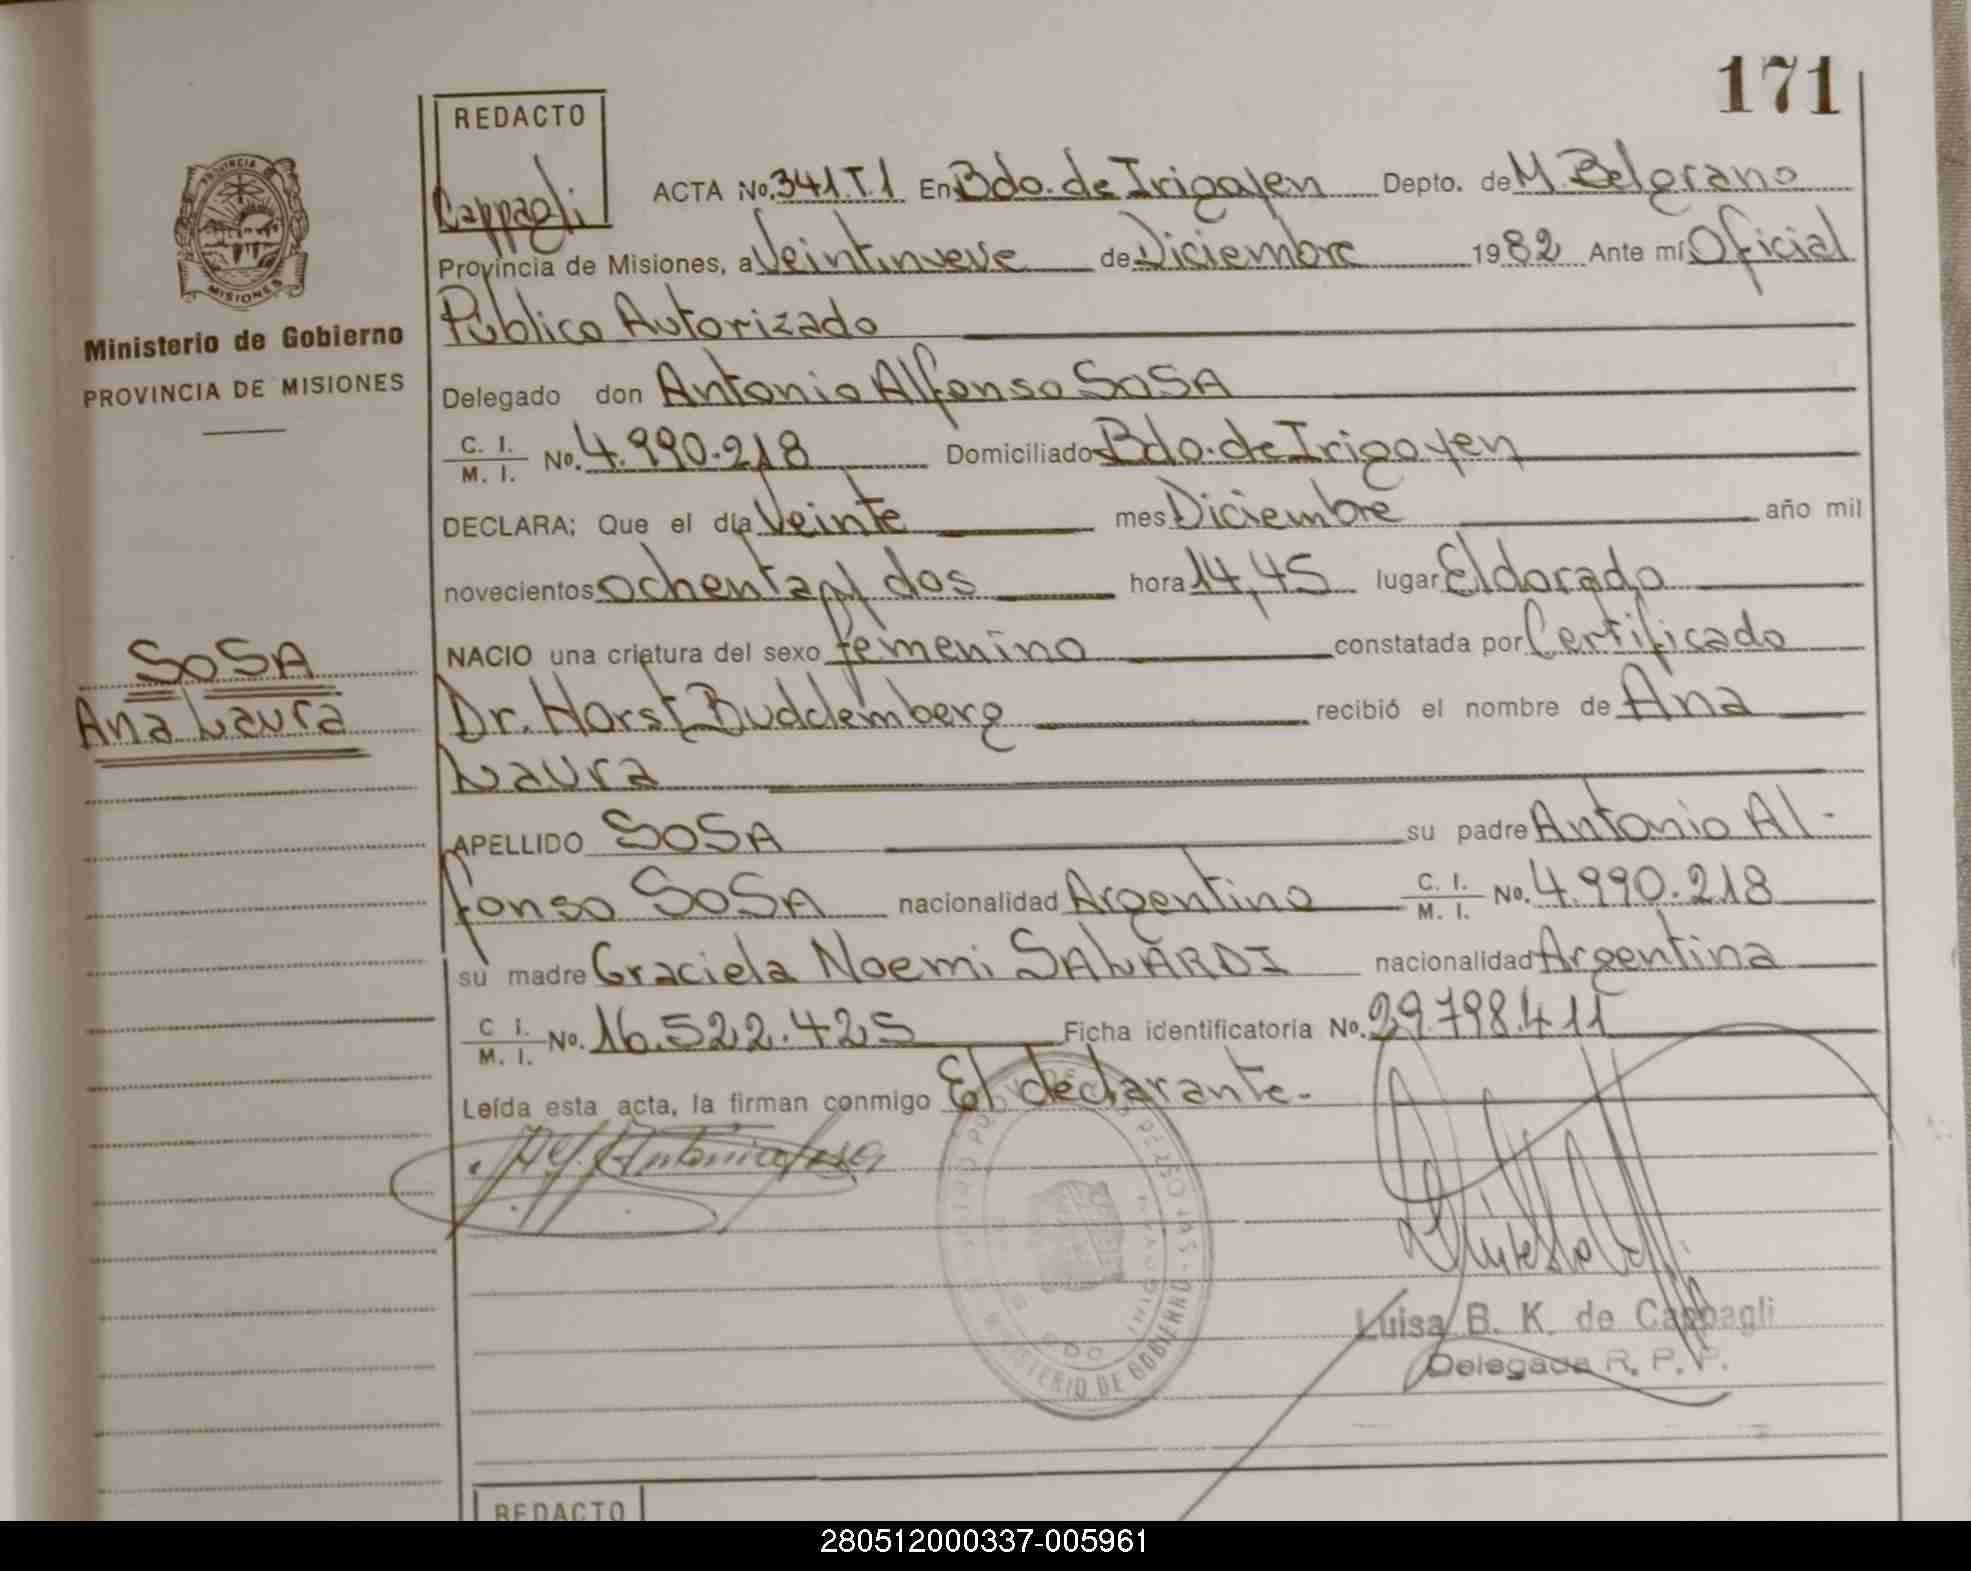 171
REDACTO
Cappagli
PROVINCIA
MISIONES
Ministerio de Gobierno
PROVINCIA DE MISIONES
SOSA
Ana Laura
ACTA No. 341.T.1 En Bdo. de Irigoyen Depto. de M. Belgrano
Provincia de Misiones, a Veintinueve de Diciembre 1982 Ante mí Oficial
Público Autorizado
Delegado don Antonio Alfonso SOSA
C. I. / M. I. No. 4.990.218 Domiciliado Bdo. de Irigoyen
DECLARA; Que el día Veinte mes Diciembre año mil
novecientos ochenta y dos hora 14,45 lugar Eldorado
NACIO una criatura del sexo femenino constatada por Certificado
Dr. Horst Buddemberg recibió el nombre de Ana
Laura
APELLIDO SOSA su padre Antonio Al-
fonso SOSA nacionalidad Argentino C. I. / M. I. No. 4.990.218
su madre Graciela Noemi SALVARDI nacionalidad Argentina
C I. / M. I. No. 16.522.425 Ficha identificatoria No. 29.798.411
Leída esta acta, la firman conmigo El declarante.-
Antonio Sosa
MINISTERIO DE GOBIERNO
Luisa B. K. de Cappagli
Delegada R. P. P.
REDACTO
280512000337-005961